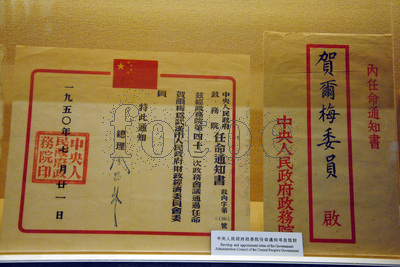 中央人民政府
政務院
任命通知書
政內字第
號
茲經政務院第四十一次政務會議通過任命
賀爾梅為武漢市人民政府財政經濟委員會委
員
特此通知
總理
一九五〇年七月廿一日
中央人
民政府政
務院印
內任命通知書
賀爾梅委員 啟
中央人民政府政務院
中央人民政府政務院任命通知書及信封
Envelop and appointment letter of the Government
Administration Council of the Central People's Government